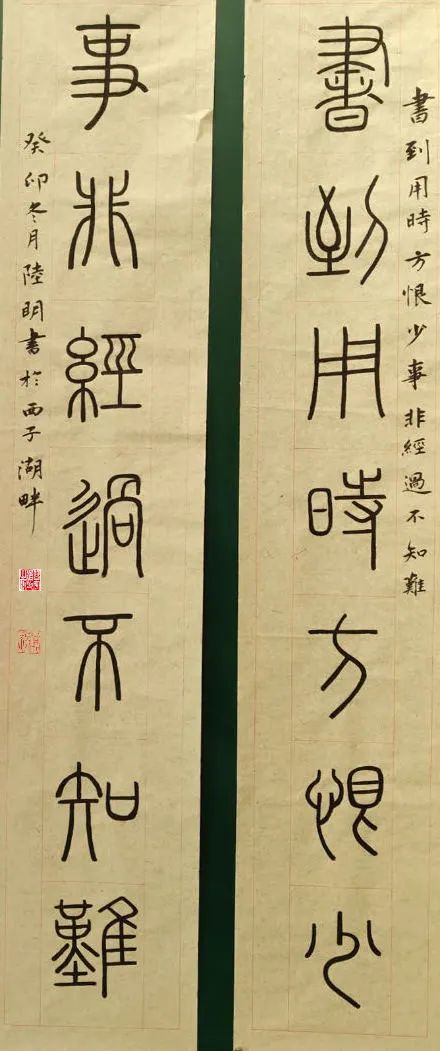 書到用時方恨少事非經過不知難
書到用時方恨少
事非經過不知難
癸卯冬月陸明書於西子湖畔